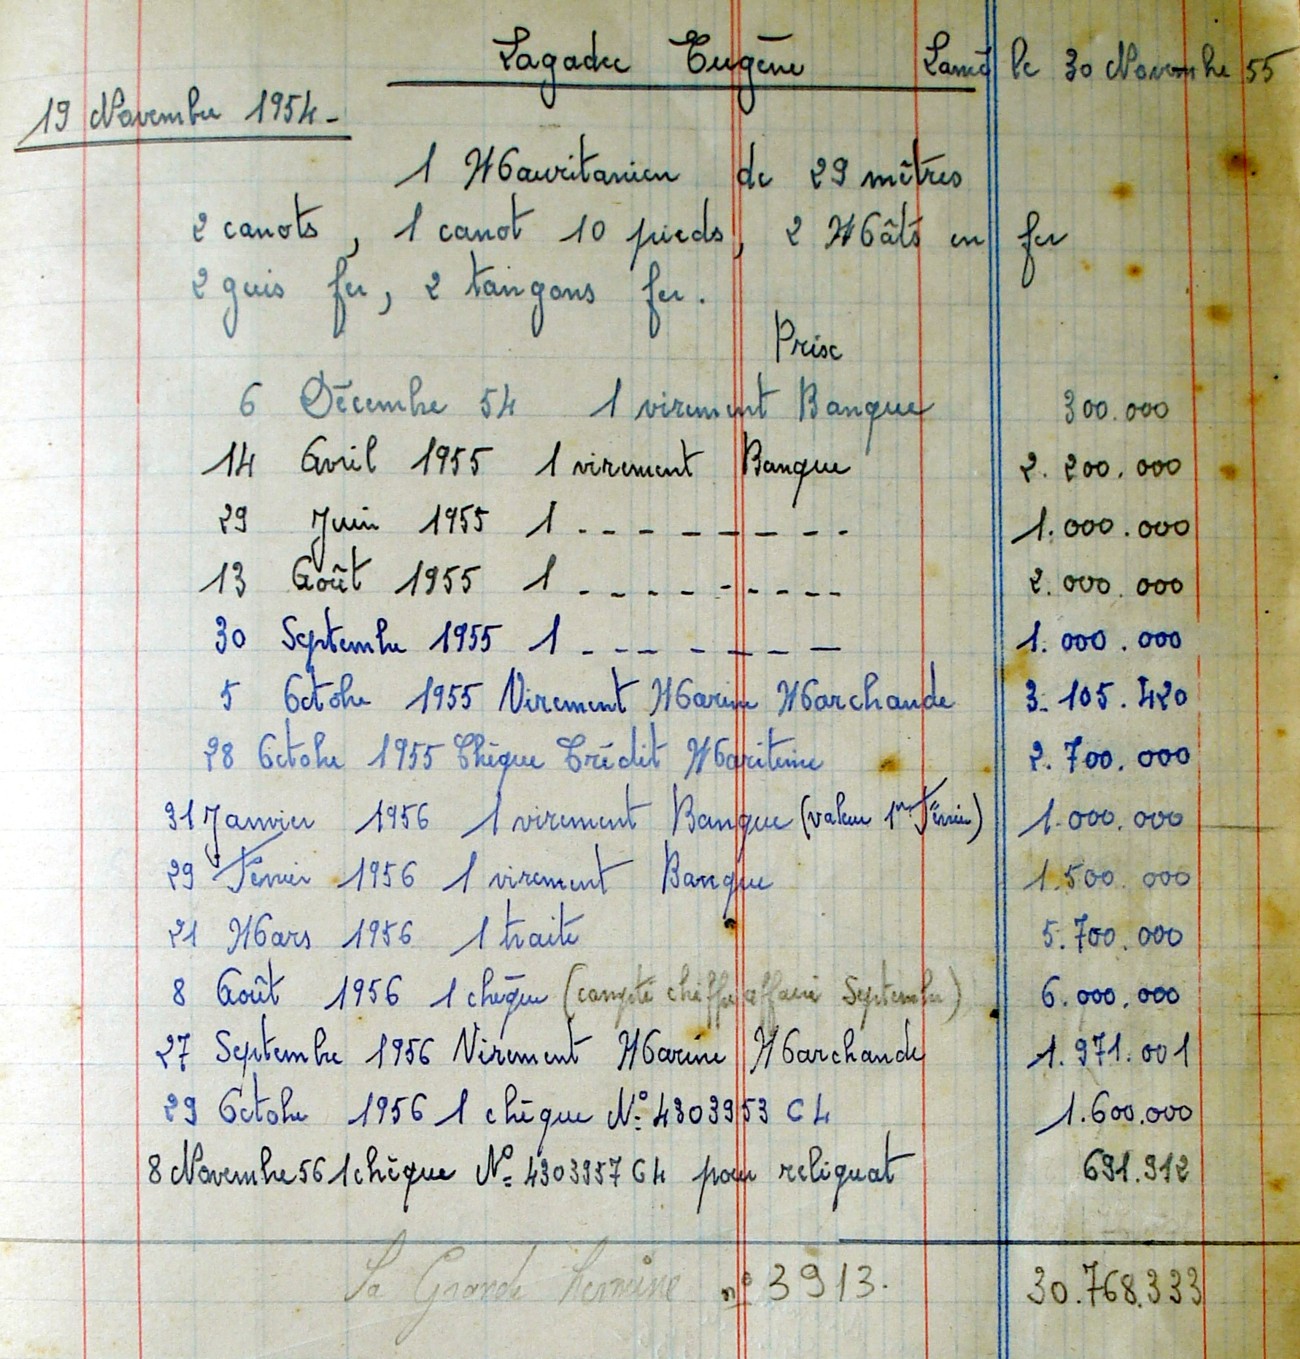 Lagadec Eugène Lancé le 30 Novembre 55
19 Novembre 1954-
1 Mauritanien de 29 mètres
2 canots, 1 canot 10 pieds, 2 Mâts en fer
2 guis fer, 2 tangons fer.
Prix
6 Décembre 54 1 virement Banque 300.000
14 Avril 1955 1 virement Banque 2.200.000
29 Juin 1955 1 - - - - - - - - - 1.000.000
13 Août 1955 1 - - - - - - - - - 2.000.000
30 Septembre 1955 1 - - - - - - - 1.000.000
5 Octobre 1955 Virement Marine Marchande 3.105.420
28 Octobre 1955 Chèque Crédit Maritime 2.700.000
31 Janvier 1956 1 virement Banque (valeur 1er Février) 1.000.000
29 Février 1956 1 virement Banque 1.500.000
21 Mars 1956 1 traite 5.700.000
8 Août 1956 1 chèque (compte chiffre affaire Septembre) 6.000.000
27 Septembre 1956 Virement Marine Marchande 1.971.001
29 Octobre 1956 1 chèque No 4303953 C4 1.600.000
8 Novembre 56 1 chèque No 4303957 C4 pour reliquat 691.912
La Grande hermine no 3913. 30.768.333